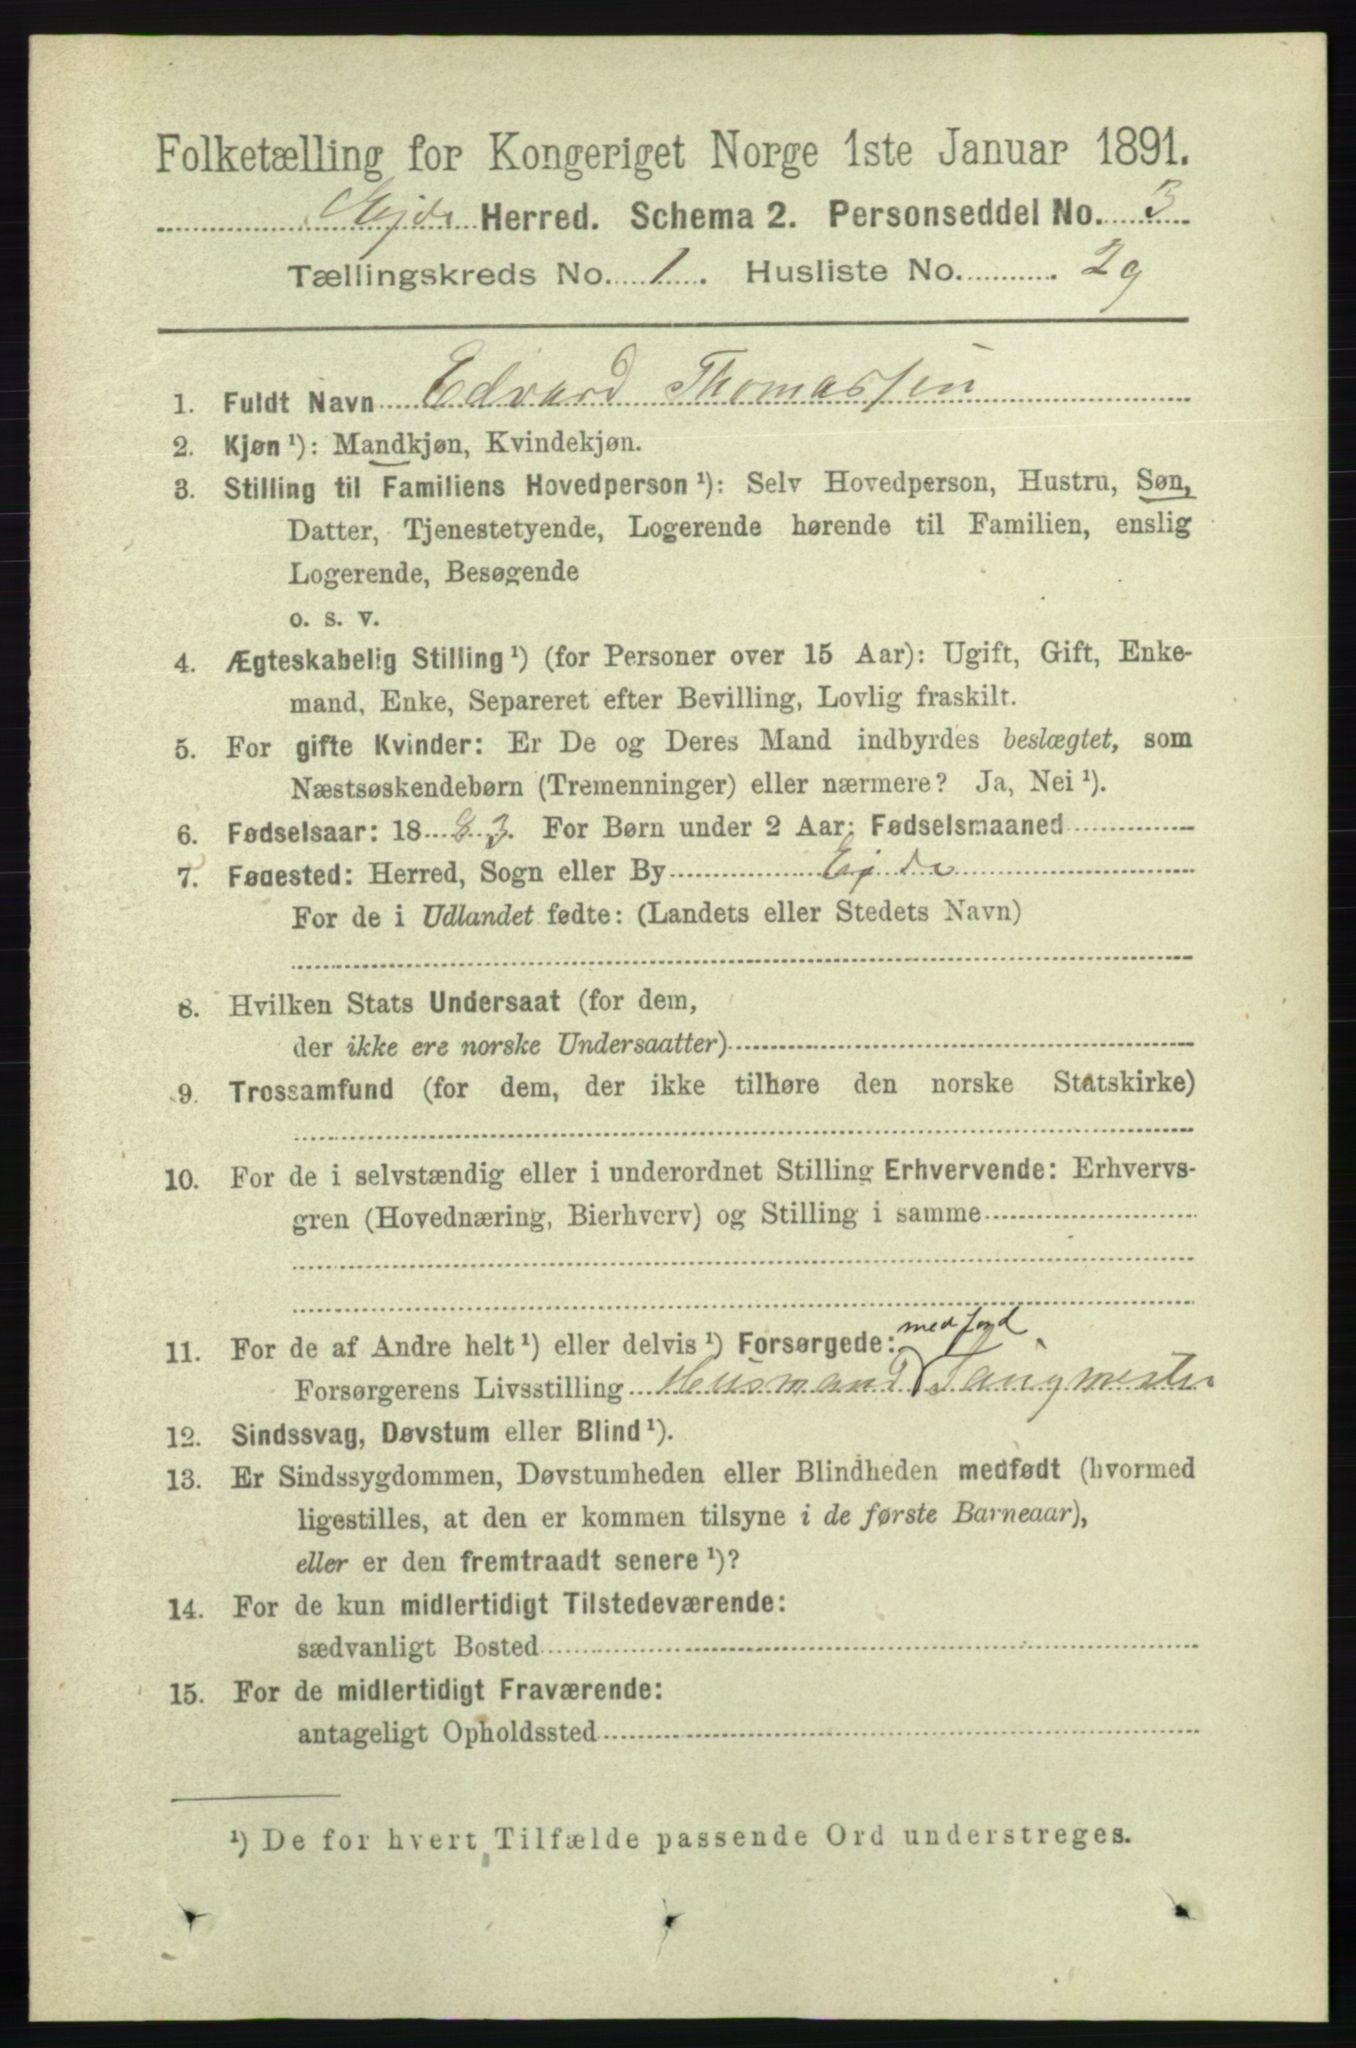 Folketælling for Kongeriget Norge 1ste Januar 1891.
Ejde Herred. Schema 2. Personseddel No. 3
Tællingskreds No. 1. Husliste No. 29
1. Fuldt Navn Edvard Thomassen
2. Kjøn ¹): Mandkjøn, Kvindekjøn.
3. Stilling til Familiens Hovedperson ¹): Selv Hovedperson, Hustru, Søn,
Datter, Tjenestetyende, Logerende hørende til Familien, enslig
Logerende, Besøgende
o. s. v.
4. Ægteskabelig Stilling ¹) (for Personer over 15 Aar): Ugift, Gift, Enke-
mand, Enke, Separeret efter Bevilling, Lovlig fraskilt.
5. For gifte Kvinder: Er De og Deres Mand indbyrdes beslægtet, som
Næstsøskendebørn (Tremenninger) eller nærmere? Ja, Nei ¹).
6. Fødselsaar: 1883. For Børn under 2 Aar: Fødselsmaaned
7. Fødested: Herred, Sogn eller By Ejde
For de i Udlandet fødte: (Landets eller Stedets Navn)
8. Hvilken Stats Undersaat (for dem,
der ikke ere norske Undersaatter)
9. Trossamfund (for dem, der ikke tilhøre den norske Statskirke)
10. For de i selvstændig eller i underordnet Stilling Erhvervende: Erhvervs-
gren (Hovednæring, Bierhverv) og Stilling i samme
11. For de af Andre helt ¹) eller delvis ¹) Forsørgede: med jord
Forsørgerens Livsstilling Husmand
12. Sindssvag, Døvstum eller Blind ¹).
13. Er Sindssygdommen, Døvstumheden eller Blindheden medfødt (hvormed
ligestilles, at den er kommen tilsyne i de første Barneaar),
eller er den fremtraadt senere ¹)?
14. For de kun midlertidigt Tilstedeværende:
sædvanligt Bosted
15. For de midlertidigt Fraværende:
antageligt Opholdssted
¹) De for hvert Tilfælde passende Ord understreges.